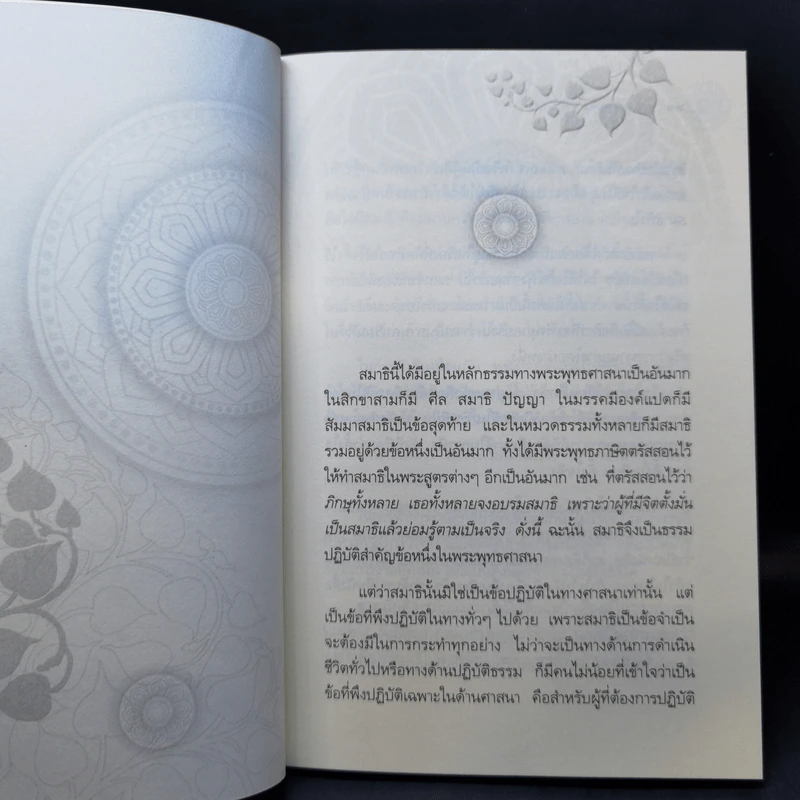 สมาธินี้ได้มีอยู่ในหลักธรรมทางพระพุทธศาสนาเป็นอันมาก
ในสิกขาสามก็มี ศีล สมาธิ ปัญญา ในมรรคมีองค์แปดก็มี
สัมมาสมาธิเป็นข้อสุดท้าย และในหมวดธรรมทั้งหลายก็มีสมาธิ
รวมอยู่ด้วยข้อหนึ่งเป็นอันมาก ทั้งได้มีพระพุทธภาษิตตรัสสอนไว้
ให้ทำสมาธิในพระสูตรต่างๆ อีกเป็นอันมาก เช่น ที่ตรัสสอนไว้ว่า
ภิกษุทั้งหลาย เธอทั้งหลายจงอบรมสมาธิ เพราะว่าผู้ที่มีจิตตั้งมั่น
เป็นสมาธิแล้วย่อมรู้ตามเป็นจริง ดั่งนี้ ฉะนั้น สมาธิจึงเป็นธรรม
ปฏิบัติสำคัญข้อหนึ่งในพระพุทธศาสนา
แต่ว่าสมาธินั้นมิใช่เป็นข้อปฏิบัติในทางศาสนาเท่านั้น แต่
เป็นข้อที่พึงปฏิบัติในทางทั่วๆ ไปด้วย เพราะสมาธิเป็นข้อจำเป็น
จะต้องมีในการกระทำทุกอย่าง ไม่ว่าจะเป็นทางด้านการดำเนิน
ชีวิตทั่วไปหรือทางด้านปฏิบัติธรรม ก็มีคนไม่น้อยที่เข้าใจว่าเป็น
ข้อที่พึงปฏิบัติเฉพาะในด้านศาสนา คือสำหรับผู้ที่ต้องการปฏิบัติ